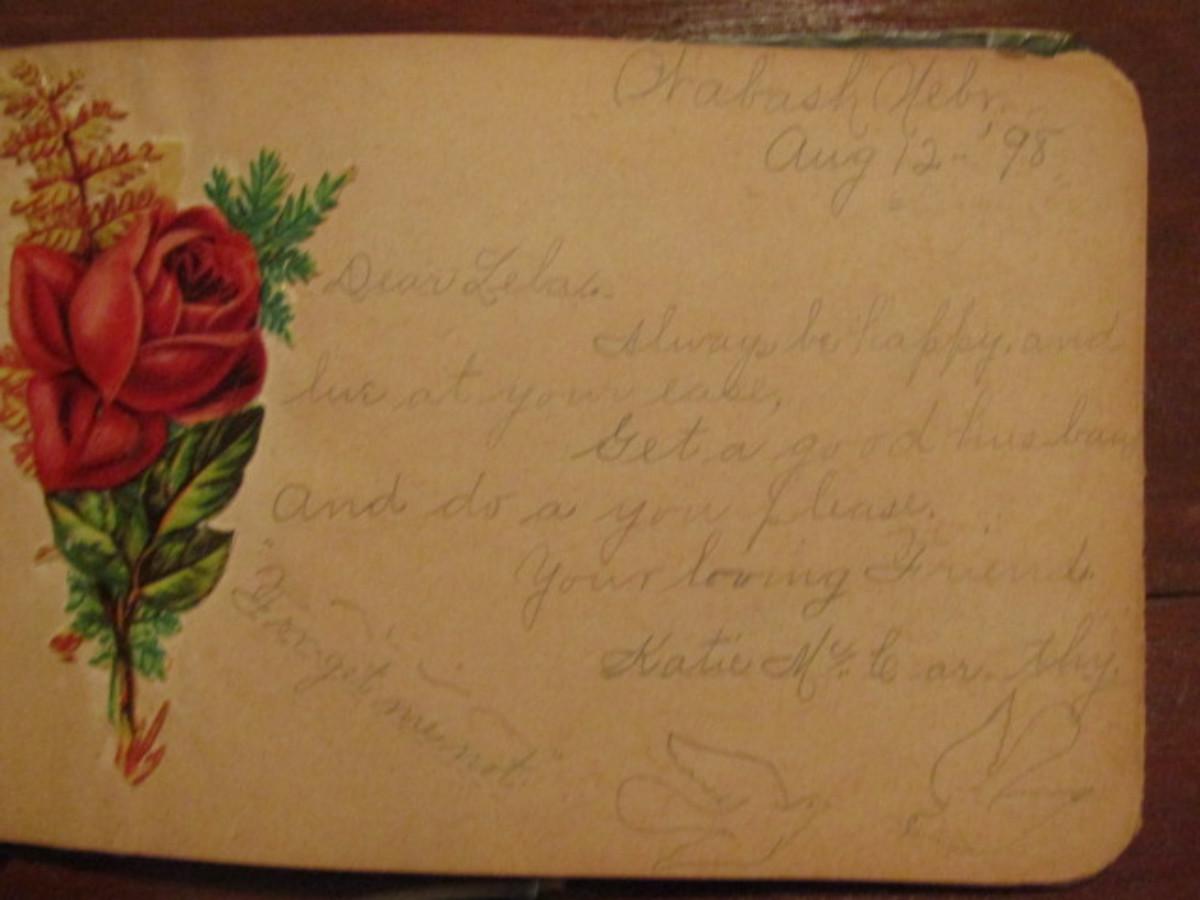 Wabash Nebr.
Aug 12 - '98
Dear Zelma.
Always be happy, and
live at your ease,
Get a good husban
And do a you please.
Your loving Friend.
Katie Mc. C ar. thy.
"For-get me not"